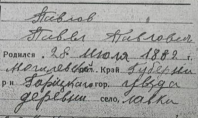 Павлов
Павел Павлович
Родился 28 Июля 1882 г.
Могилевской Край Губернии
р-н. Горецкаго гор. уезда
деревни село, лавка